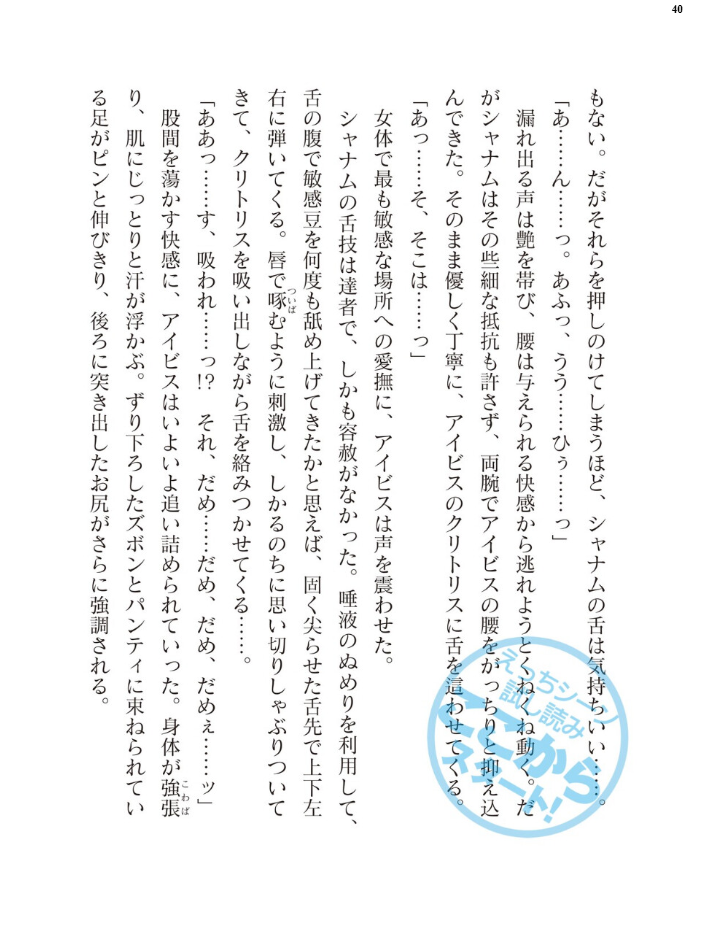 40
もない。だがそれらを押しのけてしまうほど、シャナムの舌は気持ちいい……。
「あ……ん……っ。あふっ、うう……ひぅ……っ」
　漏れ出る声は艶を帯び、腰は与えられる快感から逃れようとくねくね動く。だ
がシャナムはその些細な抵抗も許さず、両腕でアイビスの腰をがっちりと抑え込
んできた。そのまま優しく丁寧に、アイビスのクリトリスに舌を這わせてくる。
「あっ……そ、そこは……っ」
　女体で最も敏感な場所への愛撫に、アイビスは声を震わせた。
　シャナムの舌技は達者で、しかも容赦がなかった。唾液のぬめりを利用して、
舌の腹で敏感豆を何度も舐め上げてきたかと思えば、固く尖らせた舌先で上下左
右に弾いてくる。唇で啄ついばむように刺激し、しかるのちに思い切りしゃぶりついて
きて、クリトリスを吸い出しながら舌を絡みつかせてくる……。
「ああっ……す、吸われ……っ!?　それ、だめ……だめ、だめ、だめぇ……ッ」
　股間を蕩かす快感に、アイビスはいよいよ追い詰められていった。身体が強張こわば
り、肌にじっとりと汗が浮かぶ。ずり下ろしたズボンとパンティに束ねられてい
る足がピンと伸びきり、後ろに突き出したお尻がさらに強調される。
えっちシーン
試し読み
ここから
スタート！